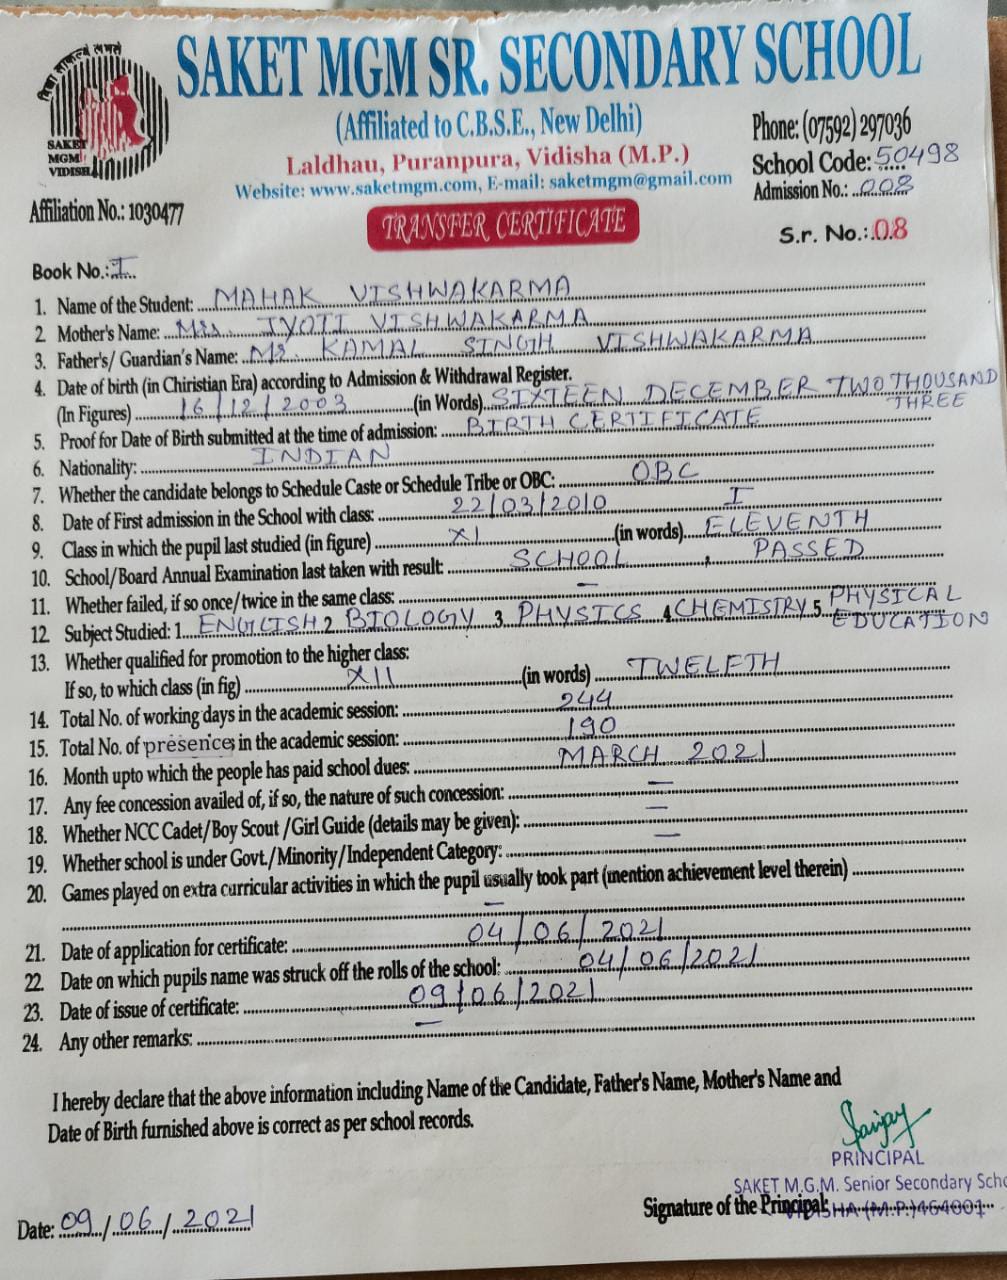 SAKET MGM SR. SECONDARY SCHOOL
(Affiliated to C.B.S.E., New Delhi)
Laldhau, Puranpura, Vidisha (M.P.)
Website: www.saketmgm.com, E-mail: saketmgm@gmail.com
SAKET
MGM
VIDISHA
Phone: (07592) 297036
School Code: 50498
Admission No.: 008
Affiliation No.: 1030477
TRANSFER CERTIFICATE
S.r. No.: 08
Book No.: I
1. Name of the Student: MAHAK VISHWAKARMA
2. Mother's Name: Mrs. JYOTI VISHWAKARMA
3. Father's/ Guardian's Name: Mr. KAMAL SINGH VISHWAKARMA
4. Date of birth (in Chiristian Era) according to Admission & Withdrawal Register.
(In Figures) 16/12/2003 (in Words) SIXTEEN DECEMBER TWO THOUSAND THREE
5. Proof for Date of Birth submitted at the time of admission: BIRTH CERTIFICATE
6. Nationality: INDIAN
7. Whether the candidate belongs to Schedule Caste or Schedule Tribe or OBC: OBC
8. Date of First admission in the School with class: 22/03/2010 I
9. Class in which the pupil last studied (in figure) XI (in words) ELEVENTH
10. School/Board Annual Examination last taken with result: SCHOOL, PASSED
11. Whether failed, if so once/twice in the same class: —
12. Subject Studied: 1. ENGLISH 2 BIOLOGY 3 PHYSICS 4 CHEMISTRY 5. PHYSICAL EDUCATION
13. Whether qualified for promotion to the higher class:
If so, to which class (in fig) XII (in words) TWELFTH
14. Total No. of working days in the academic session: 244
15. Total No. of presence in the academic session: 190
16. Month upto which the people has paid school dues: MARCH 2021
17. Any fee concession availed of, if so, the nature of such concession: —
18. Whether NCC Cadet/Boy Scout /Girl Guide (details may be given): —
19. Whether school is under Govt./Minority/Independent Category: —
20. Games played on extra curricular activities in which the pupil usually took part (mention achievement level therein)
—
21. Date of application for certificate: 04/06/2021
22. Date on which pupils name was struck off the rolls of the school: 04/06/2021
23. Date of issue of certificate: 09/06/2021
24. Any other remarks: —
I hereby declare that the above information including Name of the Candidate, Father's Name, Mother's Name and
Date of Birth furnished above is correct as per school records.
Sanjay
PRINCIPAL
SAKET M.G.M. Senior Secondary Scho
Signature of the Principal: VIDISHA (M.P.) 464001
Date: 09/06/2021